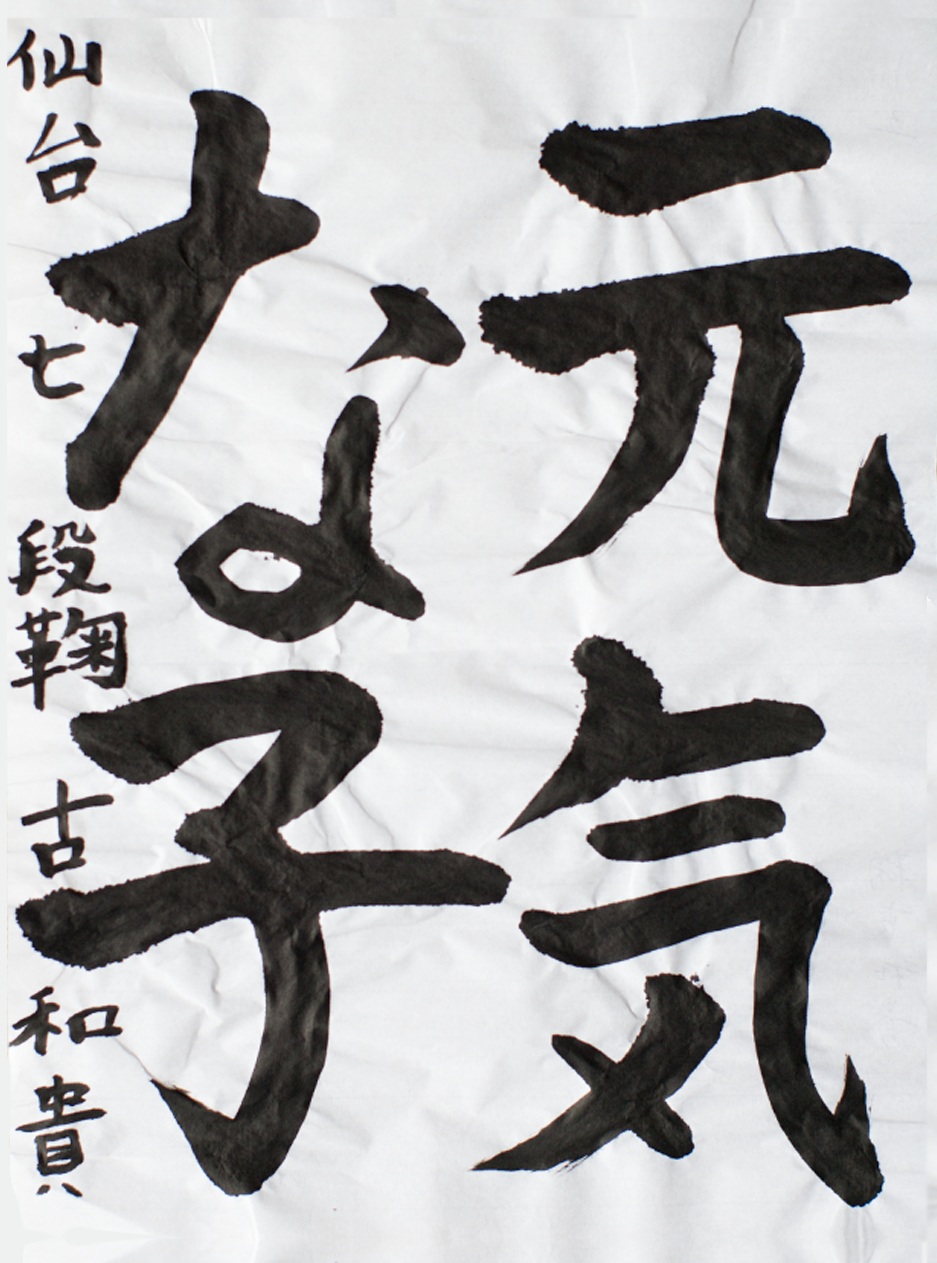 元気
な子
仙台七段鞠古和貴